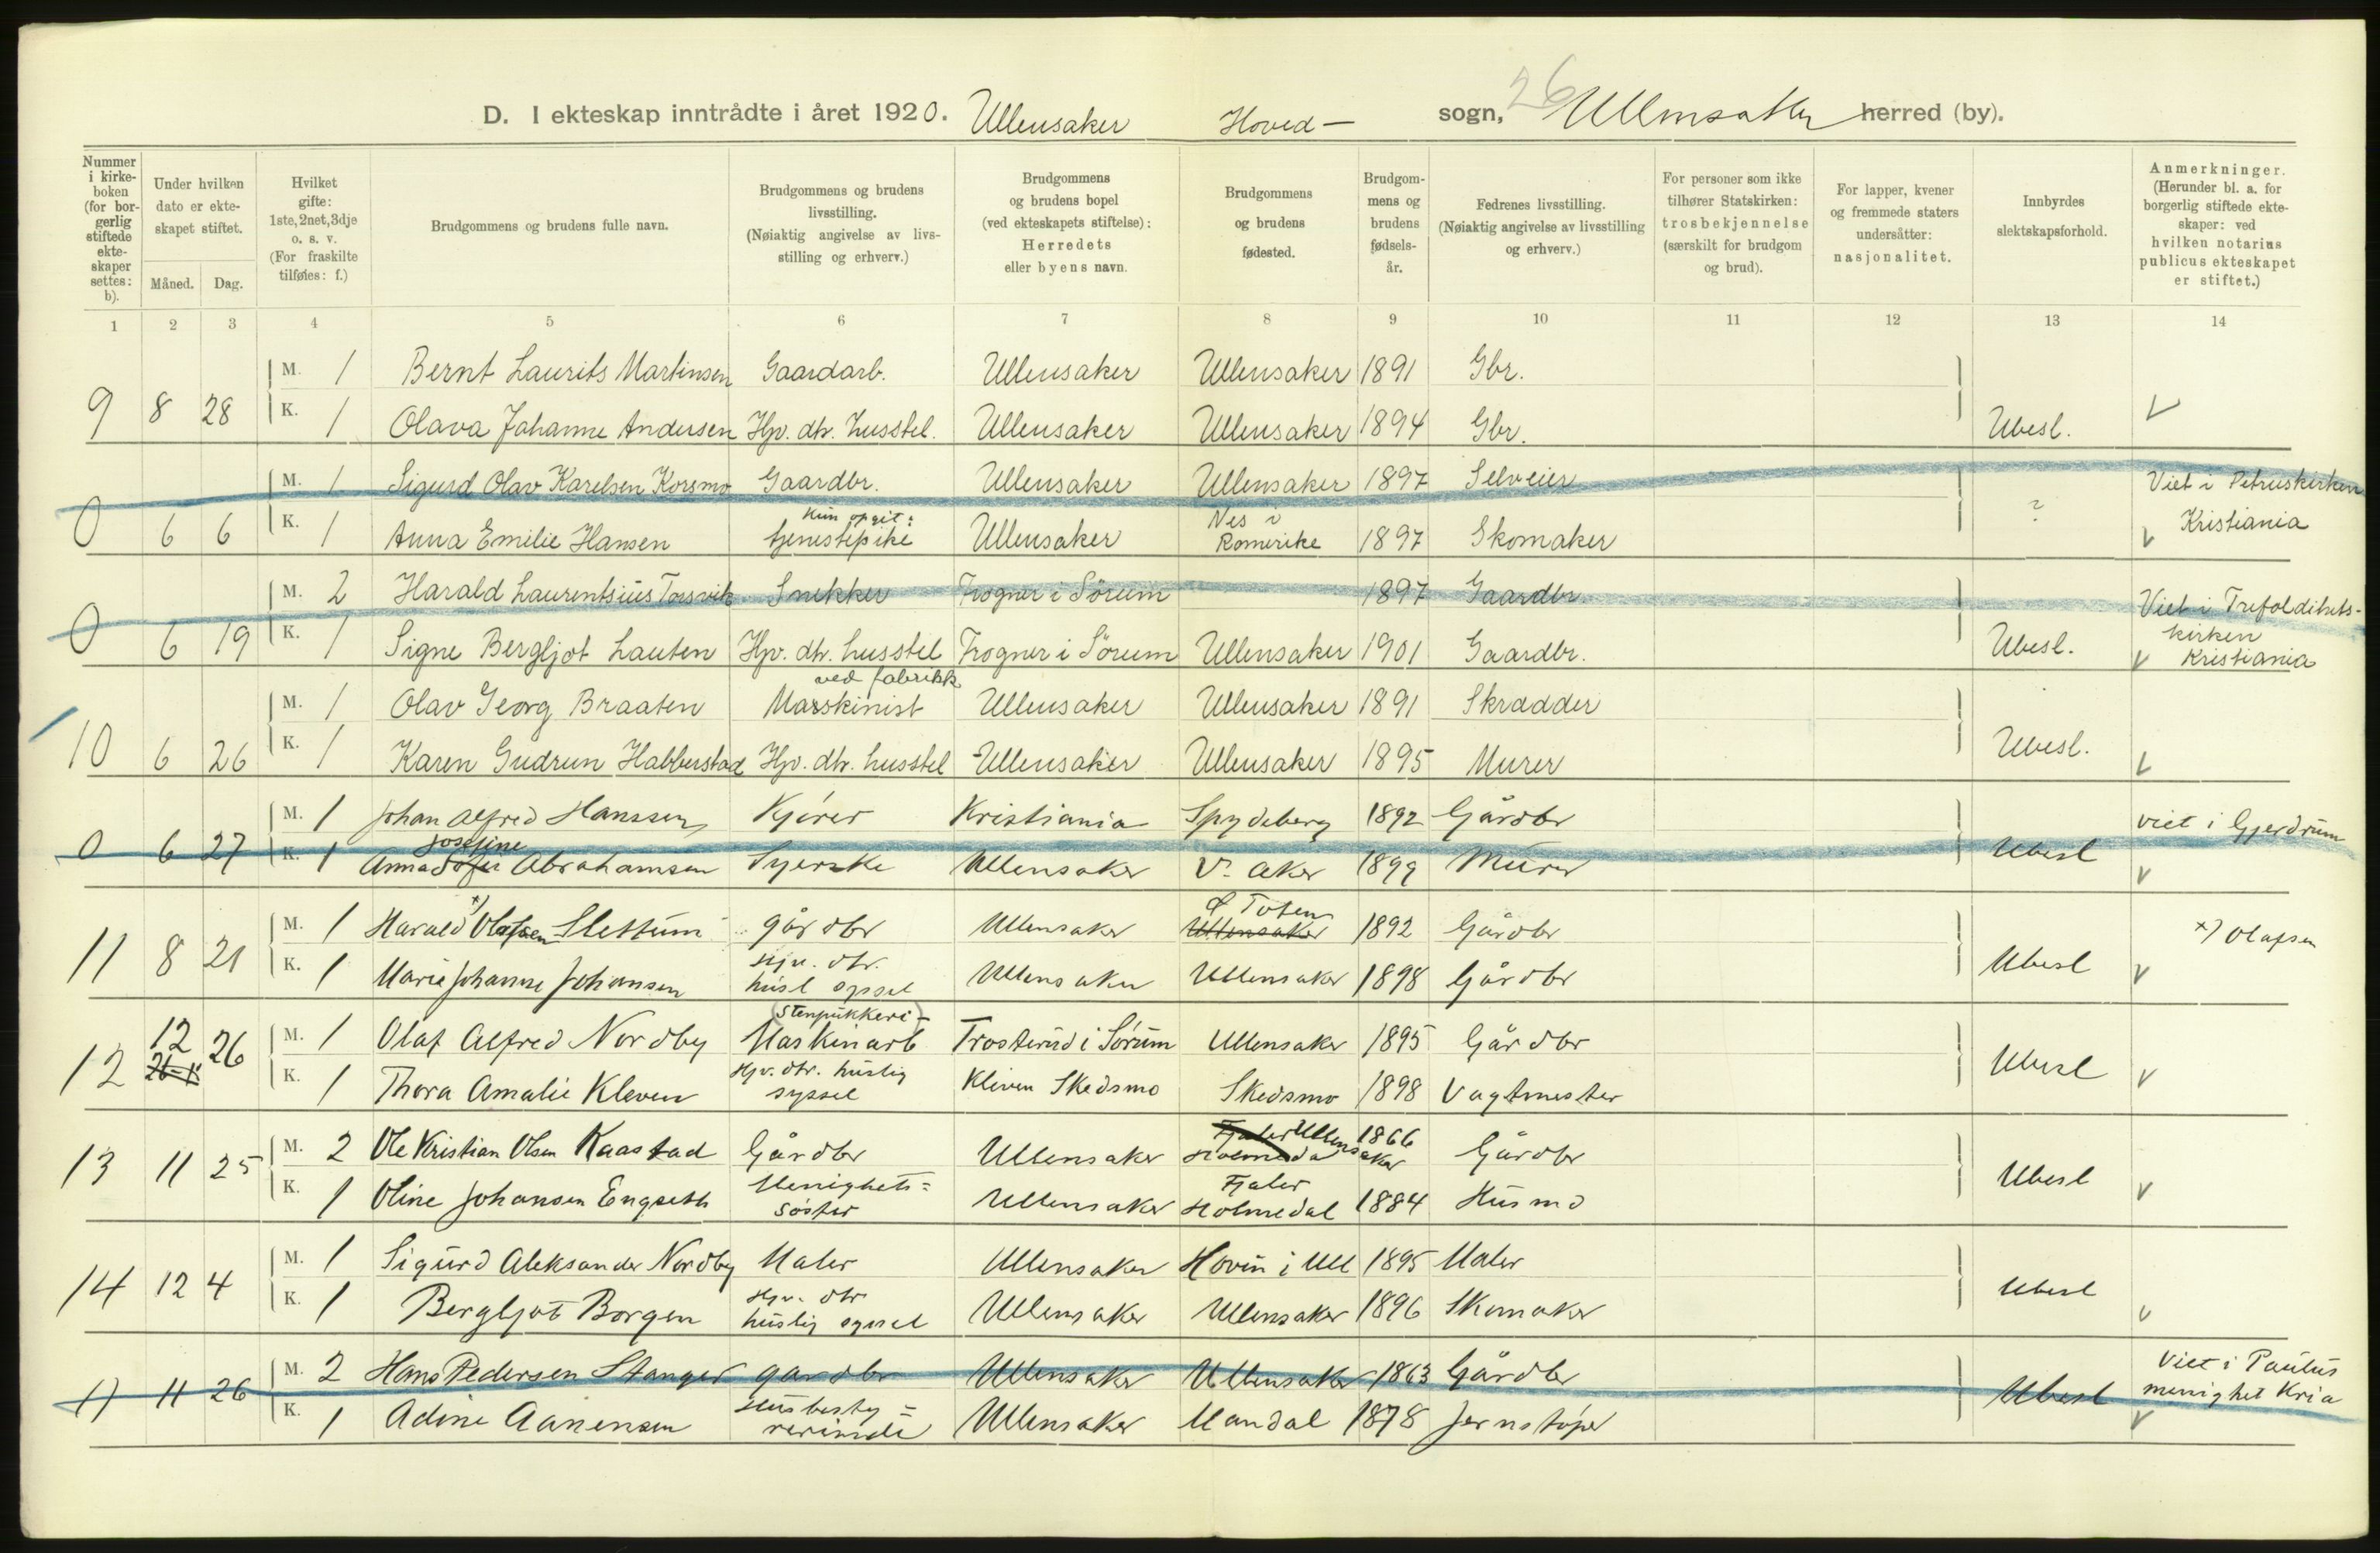 D. I ekteskap inntrådte i året 1920. Ullensaker Hoved- sogn, 26 Ullensaker herred (by).
Nummer i kirkeboken (for borgerlig stiftede ekteskaper settes: b).
Under hvilken dato er ekteskapet stiftet.
Måned. Dag.
Hvilket gifte: 1ste, 2net, 3dje o. s. v. (For fraskilte tilføies: f.)
Brudgommens og brudens fulle navn.
Brudgommens og brudens livsstilling. (Nøiaktig angivelse av livsstilling og erhverv.)
Brudgommens og brudens bopel (ved ekteskapets stiftelse): Herredets eller byens navn.
Brudgommens og brudens fødested.
Brudgommens og brudens fødselsår.
Fedrenes livsstilling. (Nøiaktig angivelse av livsstilling og erhverv.)
For personer som ikke tilhører Statskirken: trosbekjennelse (særskilt for brudgom og brud).
For lapper, kvener og fremmede staters undersåtter: nasjonalitet.
Innbyrdes slektskapsforhold.
Anmerkninger. (Herunder bl. a. for borgerlig stiftede ekteskaper: ved hvilken notarius publicus ekteskapet er stiftet.)
1 2 3 4 5 6 7 8 9 10 11 12 13 14
M. 1 Bernt Laurits Martinsen Gaardarb. Ullensaker Ullensaker 1891 Gbr.
9 8 28 K. 1 Olava Johanne Andersen Hjv. dtr. husstel. Ullensaker Ullensaker 1894 Gbr. Ubesl. V
M. 1 Sigurd Olav Karelsen Korsmo Gaardbr. Ullensaker Ullensaker 1897 Selveier Viet i Petruskirken
0 6 6 K. 1 Anna Emilie Hansen Kun opgit: tjenestepike Ullensaker Nes i Romerike 1897 Skomaker ? V Kristiania
M. 2 Harald Laurentsius Torsvik Snekker Frogner i Sørum 1897 Gaardbr. Viet i Trefoldihets-
0 6 19 K. 1 Signe Bergljot Lauten Hjv. dtr. husstel Frogner i Sørum Ullensaker 1901 Gaardbr. Ubesl. V kirken Kristiania
M. 1 Olav Georg Braaten ved fabrikk Maskinist Ullensaker Ullensaker 1891 Skrædder
10 6 26 K. 1 Karen Gudrun Habberstad Hjv. dtr. husstel Ullensaker Ullensaker 1895 Murer Ubesl. V
M. 1 Johan Alfred Hanssen Kjører Kristiania Spydeberg 1892 Gårdbr viet i Gjerdrum
0 6 27 K. 1 Anna Josefine Abrahamsen Syerske Ullensaker V. Aker 1899 Murer Ubesl V
M. 1 Harald x) Olafsen Slettum gårdbr Ullensaker Ø Toten Ullensaker 1892 Gårdbr x) Olafsen
11 8 21 K. 1 Marie Johanne Johansen Hjv. dtr. husl syssel Ullensaker Ullensaker 1898 Gårdbr Ubesl V
M. 1 Olaf Alfred Nordby (Stenpukkeri- Maskinarb Trosterud i Sørum Ullensaker 1895 Gårdbr
12 12 26 K. 1 Thora Amalie Kleven Hjv. dtr. huslig syssel Kleven Skedsmo Skedsmo 1898 Vagtmester Ubesl V
M. 2 Ole Kristian Olsen Kaastad Gårdbr Ullensaker Fjaler Holmedal Ullensaker 1866 Gårdbr
13 11 25 K. 1 Oline Johansen Engseth Menighets=søster Ullensaker Fjaler Holmedal 1884 Husmd Ubesl V
M. 1 Sigurd Aleksander Nordby Maler Ullensaker Hovin i Ull 1895 Maler
14 12 4 K. 1 Bergljot Borgen Hjv. dtr huslig syssel Ullensaker Ullensaker 1896 Skomaker Ubesl V
M. 2 Hans Pedersen Stanger gardbr Ullensaker Ullensaker 1863 Gårdbr Viet i Paulus
11 26 K. 1 Adine Aanensen Husbesty=rerinde Ullensaker Mandal 1878 Jernstøper Ubesl menighet Kria V